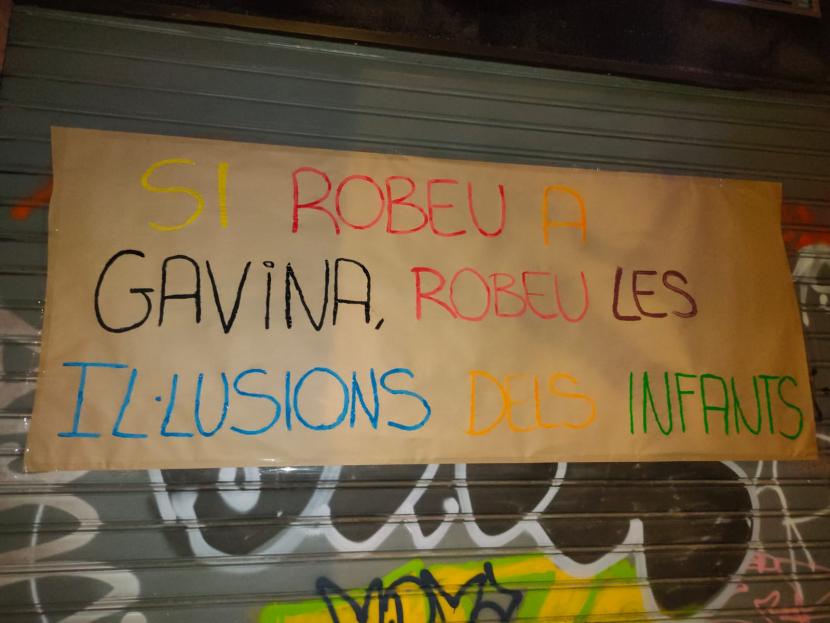 SI ROBEU A
GAVINA, ROBEU LES
IL·LUSIONS DELS INFANTS